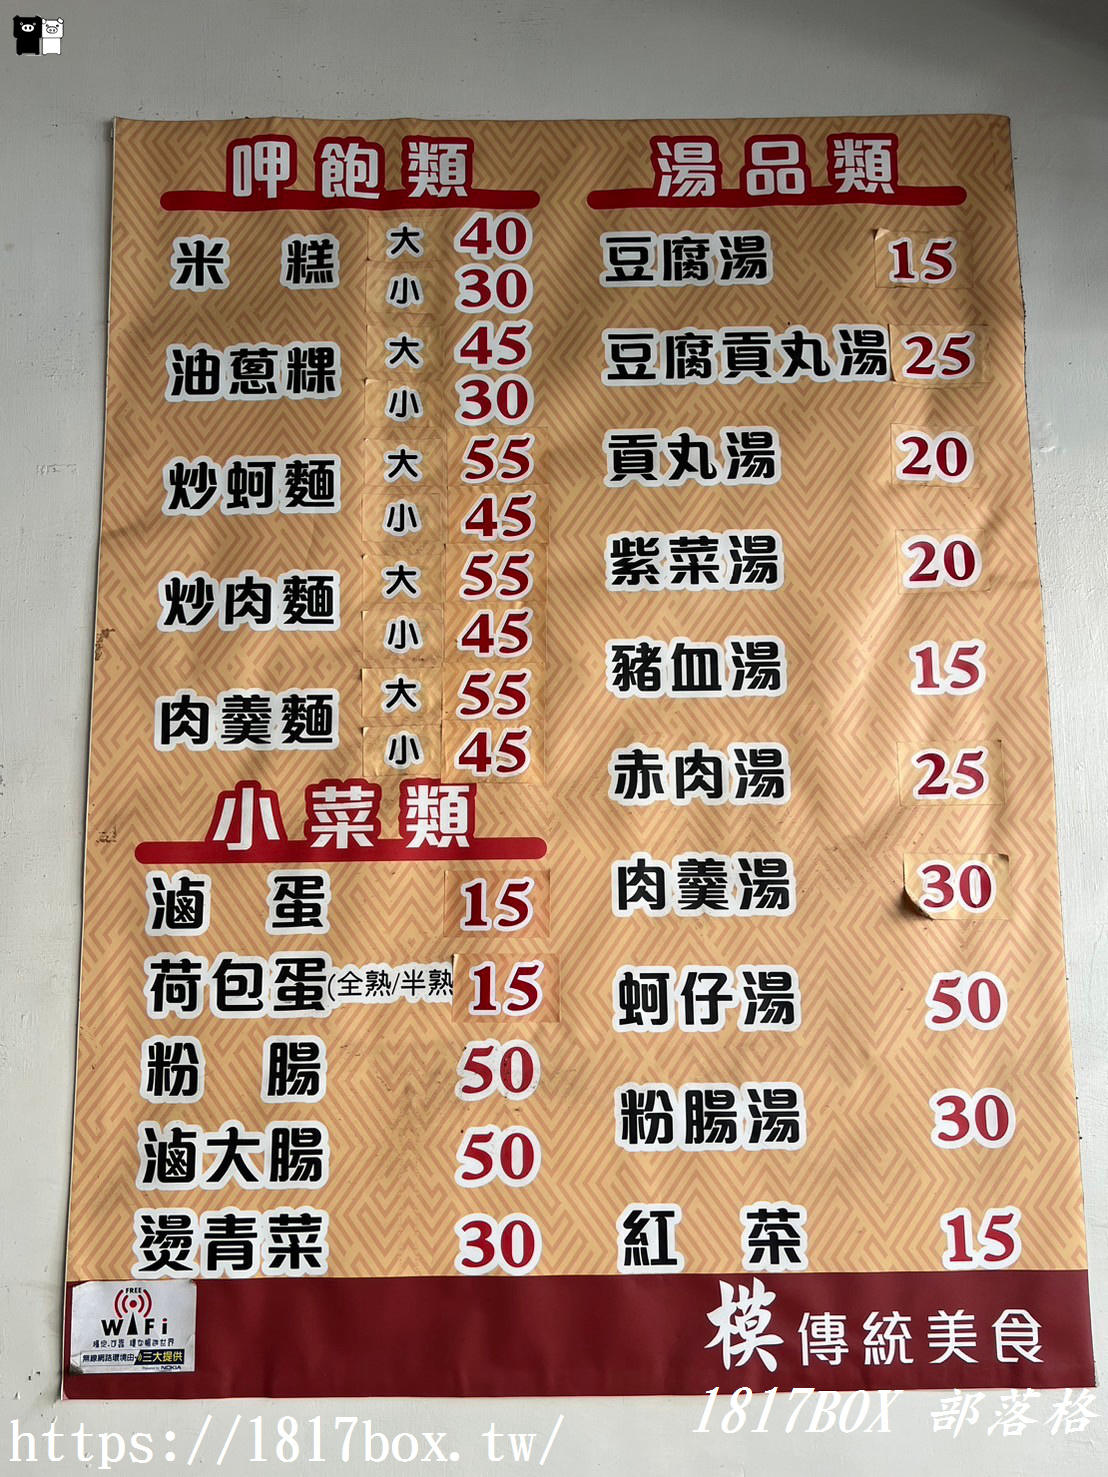 呷飽類
米糕 大 40
小 30
油蔥粿 大 45
小 30
炒蚵麵 大 55
小 45
炒肉麵 大 55
小 45
肉羹麵 大 55
小 45
小菜類
滷蛋 15
荷包蛋(全熟/半熟 15
粉腸 50
滷大腸 50
燙青菜 30
湯品類
豆腐湯 15
豆腐貢丸湯 25
貢丸湯 20
紫菜湯 20
豬血湯 15
赤肉湯 25
肉羹湯 30
蚵仔湯 50
粉腸湯 30
紅茶 15
FREE
WiFi
無線網路環境由 三大提供
NOKIA
模 傳統美食
1817BOX 部落格
https://1817box.tw/